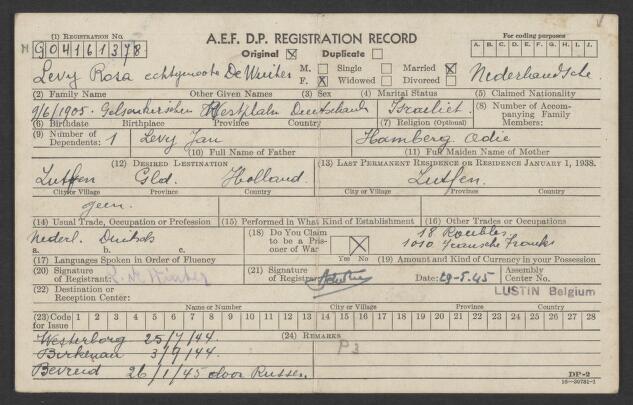 (1) REGISTRATION NO.
G04161378
A.E.F. D.P. REGISTRATION RECORD
For coding purposes
A. B. C. D. E. F. G. H. I. J.
Original ☒ Duplicate ☐
Levy Rosa echtgenoote De Winter
M. ☐ Single ☐ Married ☒
F. ☒ Widowed ☐ Divorced ☐
Nederlandsche.
(2) Family Name Other Given Names (3) Sex (4) Marital Status (5) Claimed Nationality
9/6/1905. Gelsenkirchen Westphaln Duitschland Israëliet.
(6) Birthdate Birthplace Province Country (7) Religion (Optional)
(8) Number of Accompanying Family Members:
(9) Number of Dependents: 1
Levy Jan
Hamberg
(10) Full Name of Father (11) Full Maiden Name of Mother
(12) DESIRED DESTINATION (13) LAST PERMANENT RESIDENCE OR RESIDENCE JANUARY 1, 1938.
Zutfen Gld. Holland Zutfen.
City or Village Province Country City or Village Province Country
geen.
(14) Usual Trade, Occupation or Profession (15) Performed in What Kind of Establishment (16) Other Trades or Occupations
Nederl. Duitsch
a. b. c.
(18) Do You Claim to be a Prisoner of War
Yes No ☒
18 Roebbls
1010 Fransche Franks
(17) Languages Spoken in Order of Fluency (19) Amount and Kind of Currency in your Possession
(20) Signature of Registrant:
(21) Signature of Registrar:
Date: 29-5.45
Assembly Center No.
(22) Destination or Reception Center:
LUSTIN Belgium
Name or Number City or Village Province Country
(23) Code for Issue 1 2 3 4 5 6 7 8 9 10 11 12 13 14 15 16 17 18 19 20 21 22 23 24 25 26 27 28
(24) REMARKS
Westerborg 25/7/44.
Birkenau 3/9/44.
P3
Bevreid 26/1/45 door Russen.
DP-2
16—39781-1